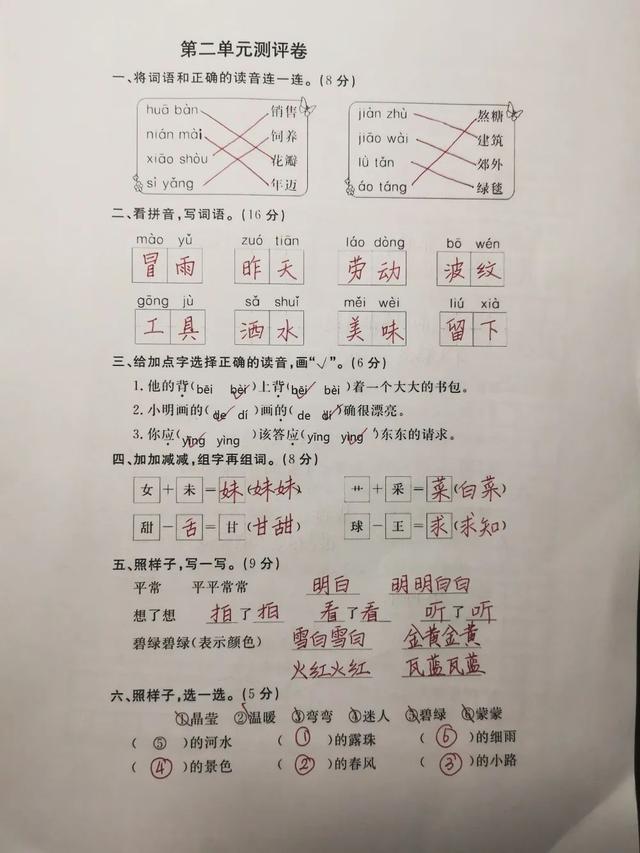 第二单元测评卷
一、将词语和正确的读音连一连。(8分)
huā bàn 销售 jiàn zhù 熬糖
nián mài 饲养 jiāo wài 建筑
xiāo shòu 花瓣 lǜ tǎn 郊外
sì yǎng 年迈 áo táng 绿毯
二、看拼音,写词语。(16分)
mào yǔ zuó tiān láo dòng bō wén
冒雨 昨天 劳动 波纹
gōng jù sǎ shuǐ měi wèi liú xià
工具 洒水 美味 留下
三、给加点字选择正确的读音,画“√”。(6分)
1. 他的背(bēi bèi√)上背(bēi√ bèi)着一个大大的书包。
2. 小明画的(de√ dí)画的(de dí√)确很漂亮。
3. 你应(yīng√ yìng)该答应(yīng yìng√)东东的请求。
四、加加减减,组字再组词。(8分)
女+未=妹(妹妹) 艹+采=菜(白菜)
甜-舌=甘(甘甜) 球-王=求(求知)
五、照样子,写一写。(9分)
平常 平平常常 明白 明明白白
想了想 拍了拍 看了看 听了听
碧绿碧绿(表示颜色) 雪白雪白 金黄金黄
火红火红 瓦蓝瓦蓝
六、照样子,选一选。(5分)
①晶莹 ②温暖 ③弯弯 ④迷人 ⑤碧绿 ⑥蒙蒙
(⑤)的河水 (①)的露珠 (⑥)的细雨
(④)的景色 (②)的春风 (③)的小路